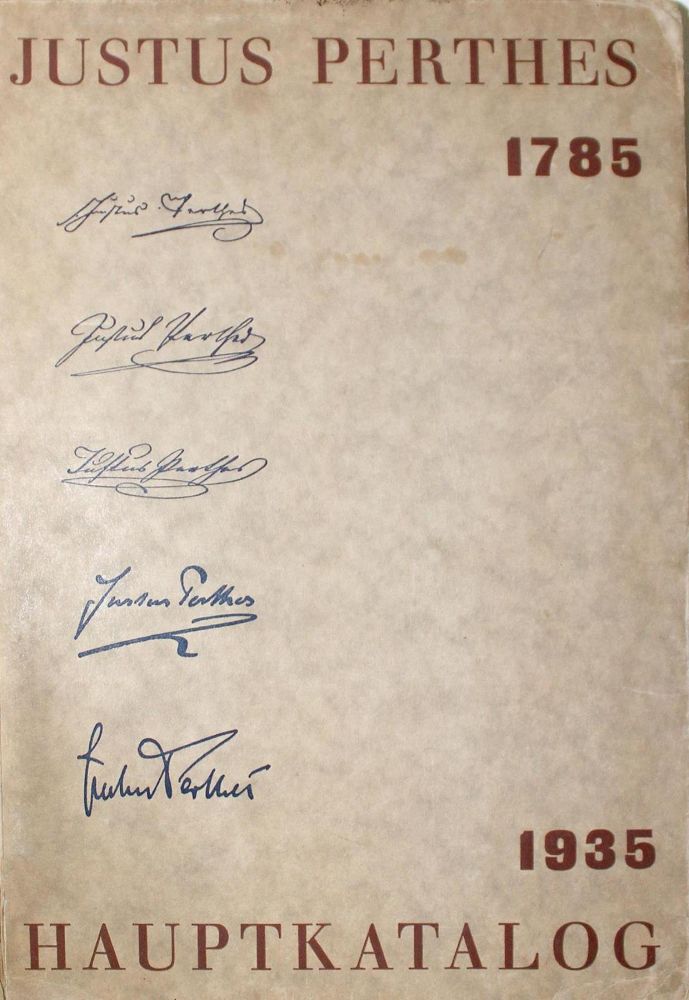 JUSTUS PERTHES
1785
Justus Perthes
Justus Perthes
Justus Perthes
Justus Perthes
Perthes
1935
HAUPTKATALOG